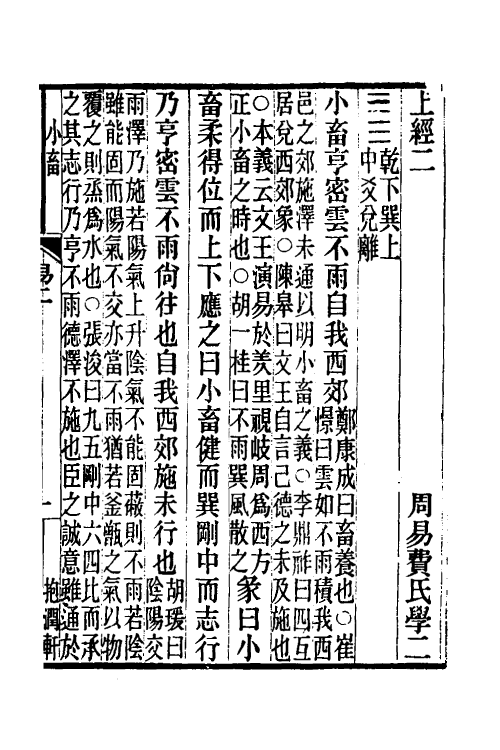 上經二 周易費氏學二
乾下巽上
中爻兌離
小畜亨密雲不雨自我西郊
鄭康成曰畜養也○崔
憬曰雲如不雨積我西
邑之郊施澤未通以明小畜之義○李鼎祚曰四互
居兌西郊象○陳皋曰文王自言己德之未及施也
○本義云文王演易於羑里視岐周爲西方
正小畜之時也○胡一桂曰不雨巽風散之
彖曰小
畜柔得位而上下應之曰小畜健而巽剛中而志行
乃亨密雲不雨尙往也自我西郊施未行也
胡瑗曰
陰陽交
雨澤乃施若陽氣上升陰氣不能固蔽則不雨若陰
雖能固而陽氣不交亦當不雨猶若釜甑之氣以物
覆之則烝爲水也○張浚曰九五剛中六四比而承
之其志行乃亨不雨德澤不施也臣之誠意雖通於
小畜 易二 一 抱潤軒